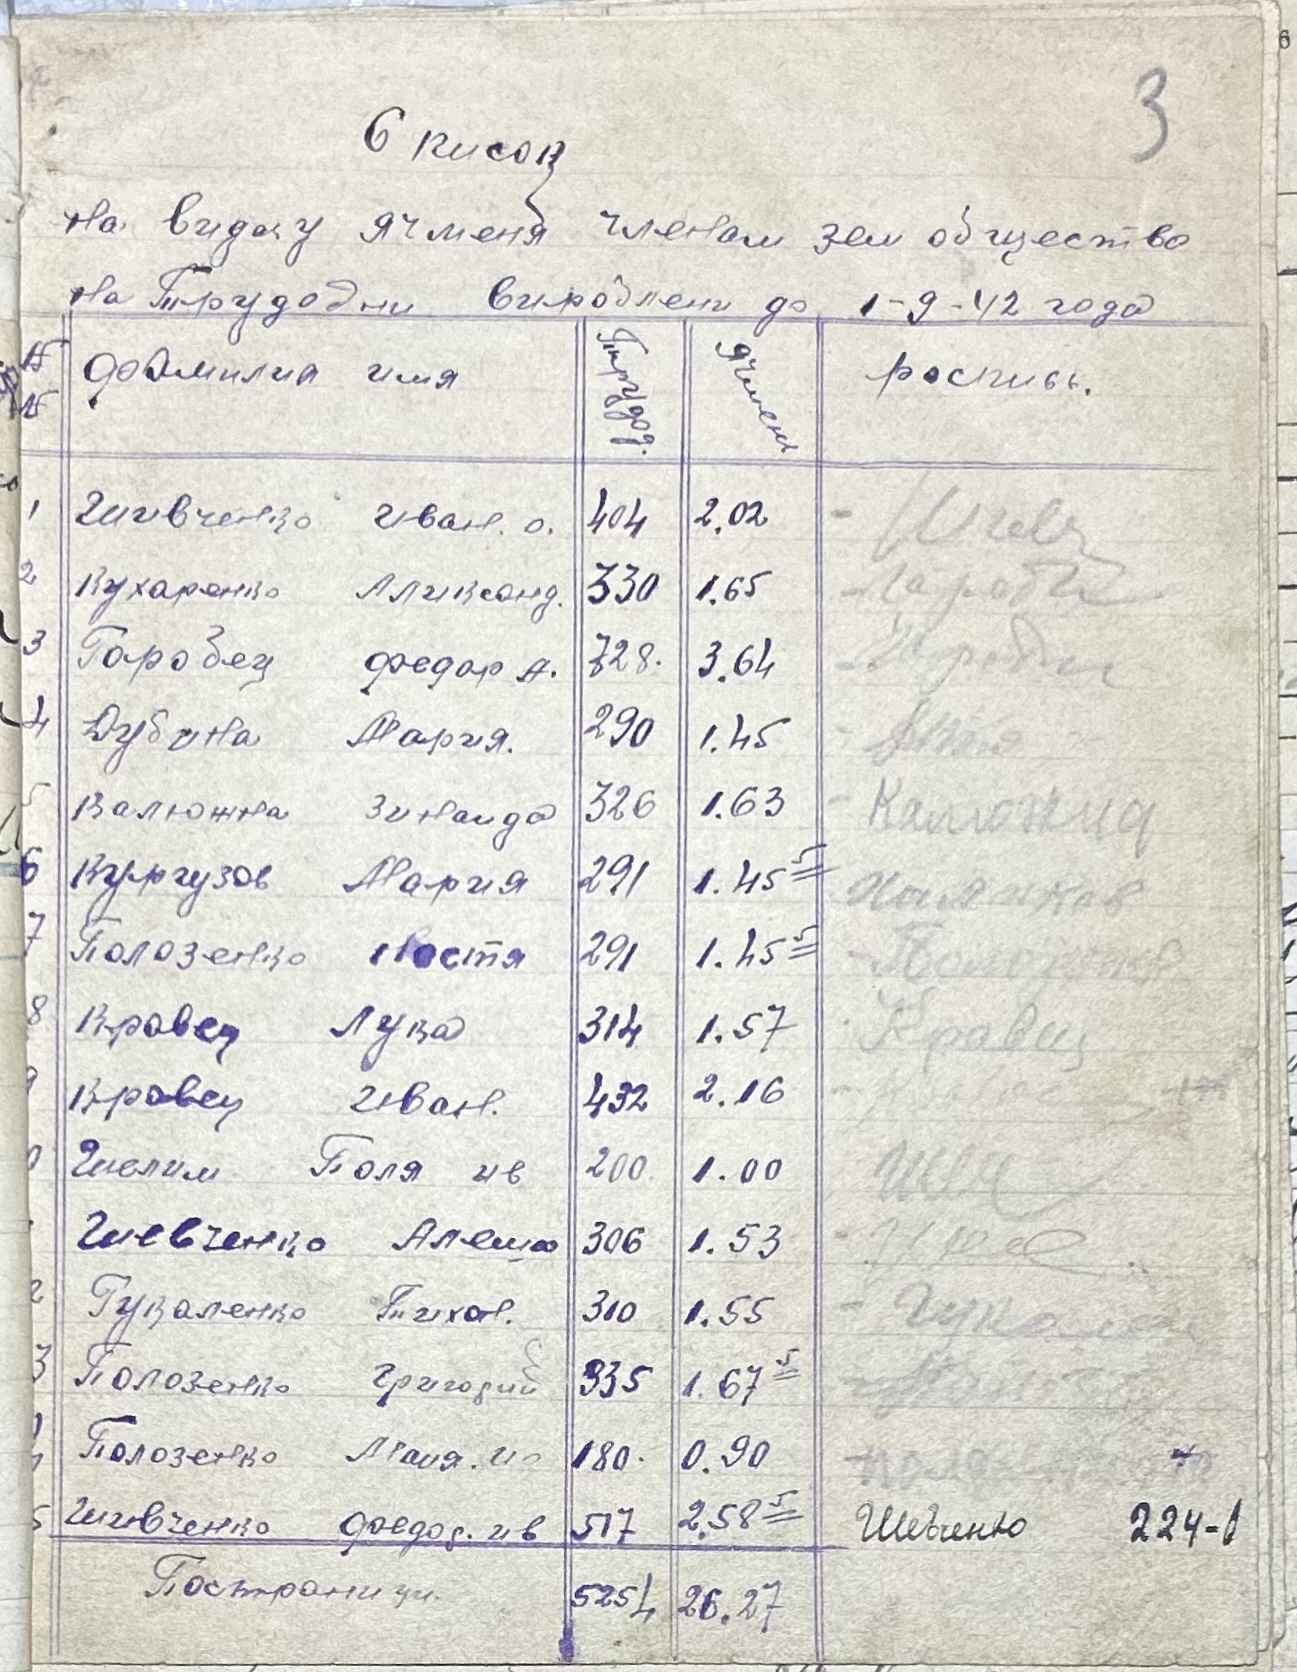 3
Список
на видачу ячменя членам зем общество
на Трудодни вироблени до 1-9-42 года
№ № Фамилия имя Трудод. Ячменя роспись.
1 Шивченко Иван. о. 404 2.02 - Шевч
2 Кухаренко Аликсанд. 330 1.65 -
3 Горобец Федор А. 728. 3.64 -
4 Дубина Мария. 290 1.45 -
5 Калюжна Зинаида 326 1.63 - Калюжна
6 Кургузов Мария 291 1.45 5
7 Полозенко Костя 291 1.45 5 -
8 Кравец Лука 314 1.57 Кравец
9 Кравец Иван. 432 2.16
0 Шелим Поля ив 200 1.00
Шевченко Алеша 306 1.53 -
2 Гукаленко Тихон. 310 1.55 - Гукален
3 Полозенко Григорий 335 1.67 5
4 Полозенко 180. 0.90
5 Шивченко Федод. ив 517 2.58 5 Шевченко 224-1
Пострарници. 5254 26.27